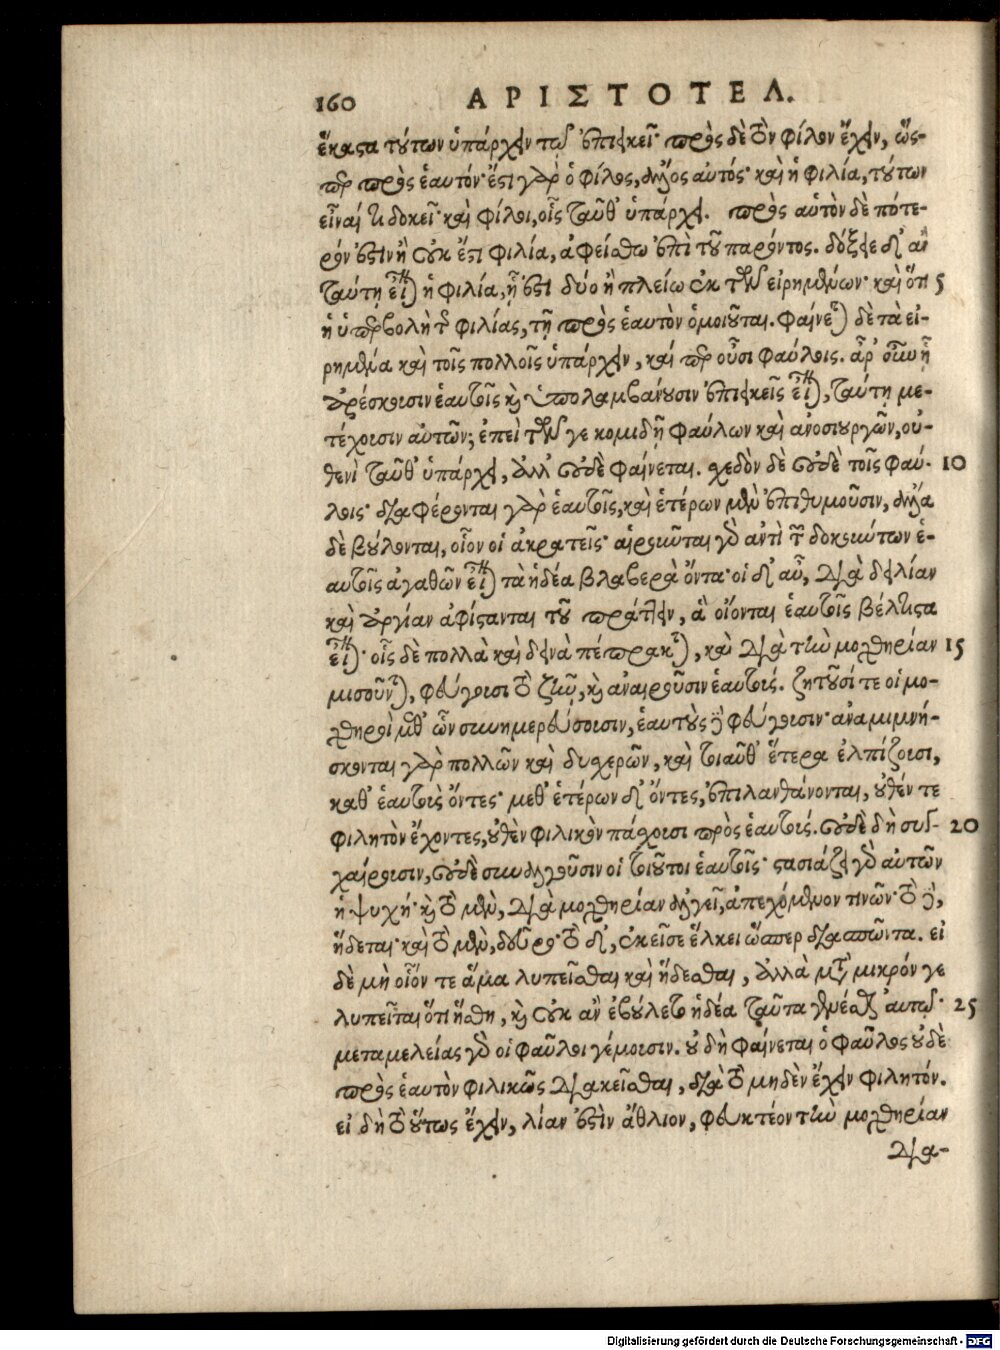 160 ΑΡΙΣΤΟΤΕΛ.
ἕκαστα τούτων ὑπάρχειν τῷ ἐπιεικεῖ· πρὸς δὲ τὸν φίλον ἔχειν, ὥσ-
περ πρὸς ἑαυτόν· ἔστι γὰρ ὁ φίλος, ἄλλος αὐτός· καὶ ἡ φιλία, τούτων
εἶναί τι δοκεῖ· καὶ φίλοι, οἷς ταῦθ' ὑπάρχει. πρὸς αὑτὸν δὲ πότε-
ρόν ἐστιν ἢ οὐκ ἔστι φιλία, ἀφείσθω ἐπὶ τοῦ παρόντος. δόξειε δ' ἂν
ταύτῃ εἶναι ἡ φιλία, ᾗ ἐστι δύο ἢ πλείω ἐκ τῶν εἰρημένων· καὶ ὅτι 5
ἡ ὑπερβολὴ τῆς φιλίας, τῇ πρὸς ἑαυτὸν ὁμοιοῦται. φαίνεται δὲ τὰ εἰ-
ρημένα καὶ τοῖς πολλοῖς ὑπάρχειν, καίπερ οὖσι φαύλοις. ἆρ' οὖν ᾗ
ἀρέσκουσιν ἑαυτοῖς καὶ ὑπολαμβάνουσιν ἐπιεικεῖς εἶναι, ταύτῃ με-
τέχουσιν αὐτῶν; ἐπεὶ τῶν γε κομιδῇ φαύλων καὶ ἀνοσιουργῶν, οὐ-
θενὶ ταῦθ' ὑπάρχει, ἀλλ' οὐδὲ φαίνεται. σχεδὸν δὲ οὐδὲ τοῖς φαύ- 10
λοις· διαφέρονται γὰρ ἑαυτοῖς, καὶ ἑτέρων μὲν ἐπιθυμοῦσιν, ἄλλα
δὲ βούλονται, οἷον οἱ ἀκρατεῖς· αἱροῦνται γὰρ ἀντὶ τῶν δοκούντων ἑ-
αυτοῖς ἀγαθῶν εἶναι τὰ ἡδέα βλαβερὰ ὄντα· οἱ δ' αὖ, διὰ δειλίαν
καὶ ἀργίαν ἀφίστανται τοῦ πράττειν, ἃ οἴονται ἑαυτοῖς βέλτιστα
εἶναι· οἷς δὲ πολλὰ καὶ δεινὰ πέπρακται, καὶ διὰ τὴν μοχθηρίαν 15
μισοῦνται, φεύγουσι τὸ ζῆν, καὶ ἀναιροῦσιν ἑαυτούς. ζητοῦσί τε οἱ μο-
χθηροὶ μεθ' ὧν συνημερεύσουσιν, ἑαυτοὺς δὲ φεύγουσιν· ἀναμιμνή-
σκονται γὰρ πολλῶν καὶ δυσχερῶν, καὶ τοιαῦθ' ἕτερα ἐλπίζουσι,
καθ' ἑαυτοὺς ὄντες· μεθ' ἑτέρων δ' ὄντες, ἐπιλανθάνονται, οὐθέν τε
φιλητὸν ἔχοντες, οὐθὲν φιλικὸν πάσχουσι πρὸς ἑαυτούς. οὐδὲ δὴ συγ- 20
χαίρουσιν, οὐδὲ συναλγοῦσιν οἱ τοιοῦτοι ἑαυτοῖς· στασιάζει γὰρ αὐτῶν
ἡ ψυχή· καὶ τὸ μὲν, διὰ μοχθηρίαν ἀλγεῖ, ἀπεχόμενον τινῶν· τὸ δὲ,
ἥδεται· καὶ τὸ μὲν, δεῦρο· τὸ δ', ἐκεῖσε ἕλκει ὥσπερ διασπῶντα. εἰ
δὲ μὴ οἷόν τε ἅμα λυπεῖσθαι καὶ ἥδεσθαι, ἀλλὰ μετὰ μικρόν γε
λυπεῖται ὅτι ἥσθη, καὶ οὐκ ἂν ἐβούλετο ἡδέα ταῦτα γενέσθαι αὐτῷ· 25
μεταμελείας γὰρ οἱ φαῦλοι γέμουσιν. οὐ δὴ φαίνεται ὁ φαῦλος οὐδὲ
πρὸς ἑαυτὸν φιλικῶς διακεῖσθαι, διὰ τὸ μηδὲν ἔχειν φιλητόν.
εἰ δὴ τὸ οὕτως ἔχειν, λίαν ἐστὶν ἄθλιον, φευκτέον τὴν μοχθηρίαν
δια-
Digitalisierung gefördert durch die Deutsche Forschungsgemeinschaft - DFG